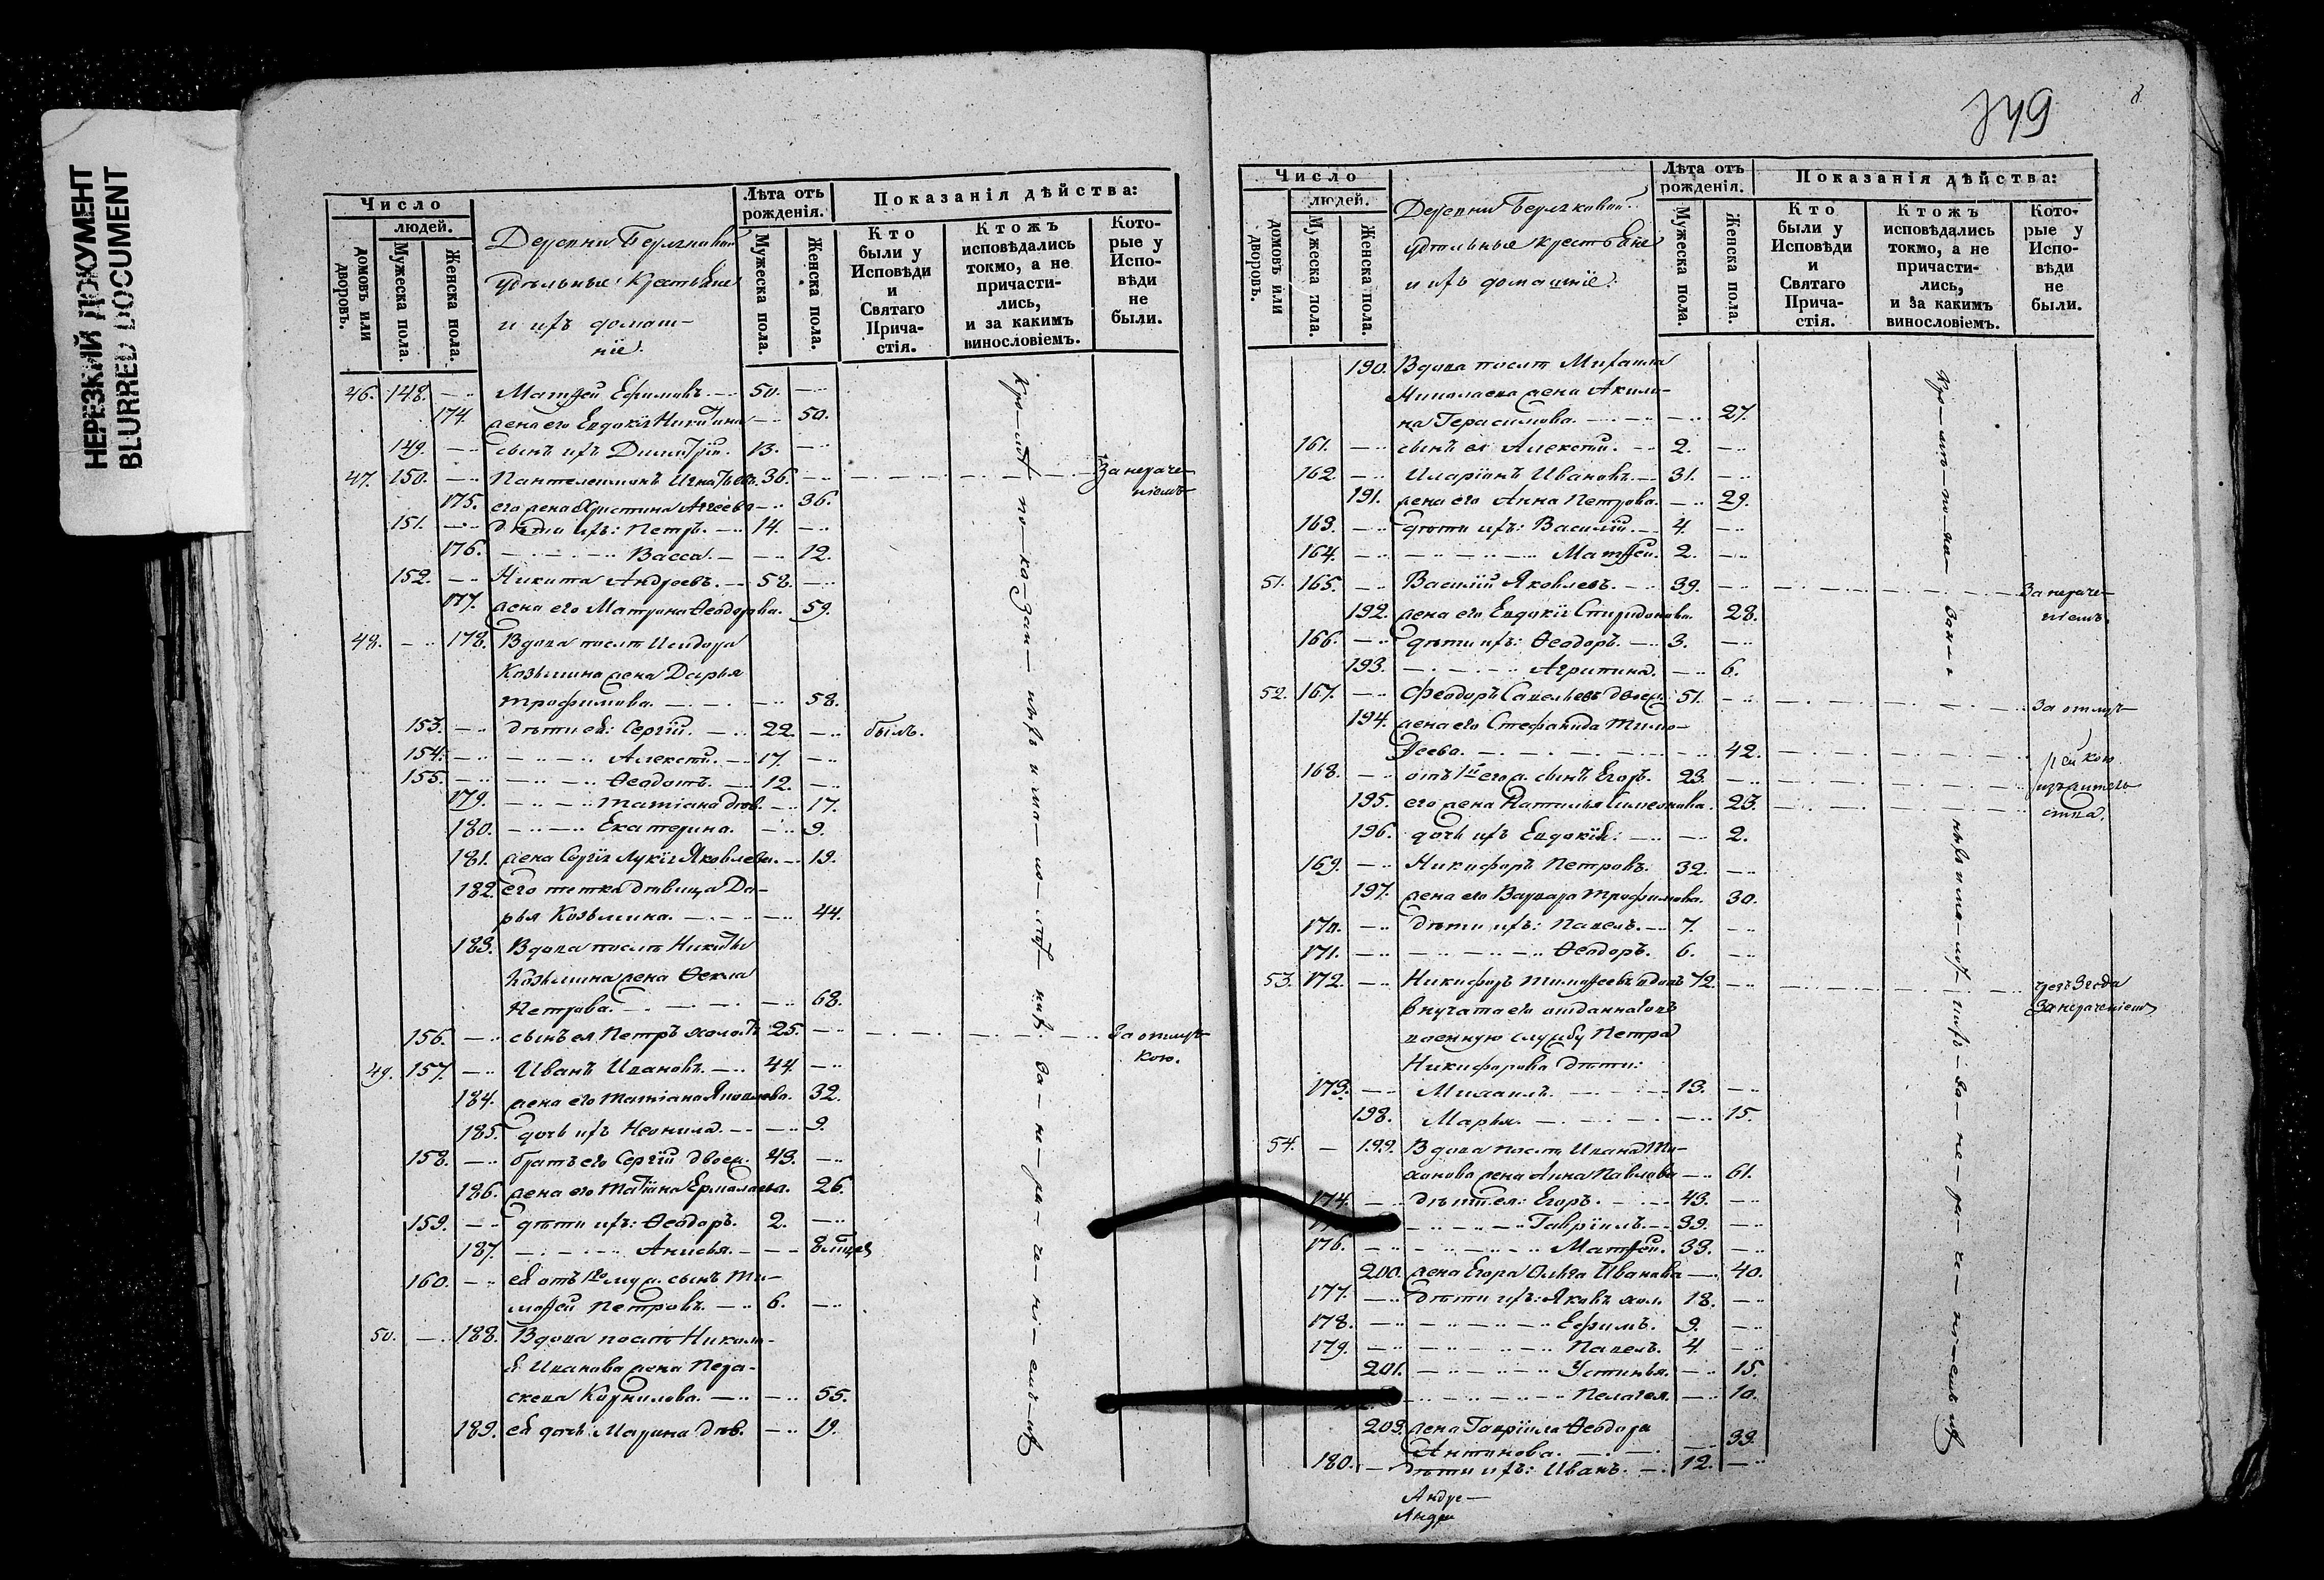 НЕРЕЗКИЙ ДОКУМЕНТ
BLURRED DOCUMENT
Число
людей.
домовъ или дворовъ.
Мужеска пола.
Женска пола.
Деревни
удѣльные крестьяне
и ихъ домаш-
ніе.
Лѣта отъ рожденія.
Мужеска пола.
Женска пола.
Показанія дѣйства:
Кто были у Исповѣди и Святаго Прича- стія.
Ктожъ исповѣдались токмо, а не причасти- лись, и за какимъ винословіемъ.
Кото- рые у Испо- вѣди не были.
46. 148. Матѳей Ефимовъ. 50.
174. жена его Евдокія Никитина 50.
149. сынъ ихъ Димитрій. 13.
47. 150. Пантелеимонъ Игнатьевъ. 36. За нераче-
ніемъ
175. его жена Христина Агѣева 36.
151. дѣти ихъ: Петръ. 14.
176. Васса. 12.
152. Никита Андреевъ. 58.
177. жена его Матрона Ѳеодорова. 59.
48. 178. Вдова послѣ Исидора
Козьмина жена Дарья
Трофимова. 58.
153. дѣти ея: Сергій. 22. былъ.
154. Алексѣй. 17.
155. Ѳеодотъ. 12.
179. Татіана дѣв. 17.
180. Екатерина. 9.
181. жена Сергія Лукія Яковлева. 19.
182. его тетка дѣвица Да-
рья Козьмина. 44.
183. Вдова послѣ Никиты
Козьмина жена Ѳекла
Петрова. 68.
156. сынъ ея Петръ холостъ 25. За отлуч-
кою.
49. 157. Иванъ Ивановъ. 44.
184. жена его Татіана Яковлева. 32.
185. дочь ихъ Неонила. 9.
158. братъ его Сергій двоеж. 43.
186. жена его Татіана Ермолаева. 26.
159. дѣти ихъ: Ѳеодоръ. 2.
187. Анисья. 8 мѣсяц
160. ея отъ 1го муж. сынъ Ти-
моѳей Петровъ. 6.
50. 188. Вдова послѣ Никола-
я Иванова жена Пара-
скева Корнилова. 55.
189. ея дочь Марина дѣв. 19.
749
Число
людей.
домовъ или дворовъ.
Мужеска пола.
Женска пола.
Деревни
удѣльные крестьяне
и ихъ домашніе.
Лѣта отъ рожденія.
Мужеска пола.
Женска пола.
Показанія дѣйства:
Кто были у Исповѣди и Святаго Прича- стія.
Ктожъ исповѣдались токмо, а не причасти- лись, и за какимъ винословіемъ.
Кото- рые у Испо- вѣди не были.
190. Вдова послѣ Михаила
Николаева жена Акили-
на Герасимова. 27.
161. сынъ ея Алексѣй. 2.
162 Иларіонъ Ивановъ. 31.
191. жена его Анна Петрова. 29.
163. дѣти ихъ: Василій. 4.
164. Матѳей. 2.
51. 165. Василій Яковлевъ. 39. За нераче-
ніемъ.
192. жена его Евдокія Спиридонова. 28.
166. дѣти ихъ: Ѳеодоръ. 3.
193. Агрипина. 6.
52. 167. Феодоръ Савельевъ двоеж. 51. За отлуч-
194. жена его Стефанида Тимо-
ѳеева. 42.
168. отъ 1й его ж. сынъ Егоръ. 23.
195. его жена Наталья Симеонова. 23.
196. дочь ихъ Евдокія: 2.
169. Никифоръ Петровъ. 32.
197. жена его Варвара Трофимова. 30.
170. дѣти ихъ: Павелъ. 7.
171. Ѳеодоръ. 6.
53. 172. Никифоръ Тимоѳеевъ вдовъ 72. 3 года
За нераченіемъ
внучата его отданнаго въ
военную службу Петра
Никифорова дѣти:
173. Михаилъ. 13.
198. Марья. 15.
54. 199. Вдова послѣ Ивана Ти-
хонова жена Анна Павлова 61.
174. дѣти ея: Егоръ. 43.
Гавріилъ. 39.
176. Матѳей. 33.
200. жена Егора Ольга Иванова 40.
177. дѣти ихъ: Яковъ хол. 18.
178. Ефимъ. 9.
179. Павелъ. 4.
201. Устинья. 15.
Пелагея. 10.
203. жена Гавріила Ѳеодора
Антонова. 33.
180. дѣти ихъ: Иванъ. 12.
Андре-
Андре